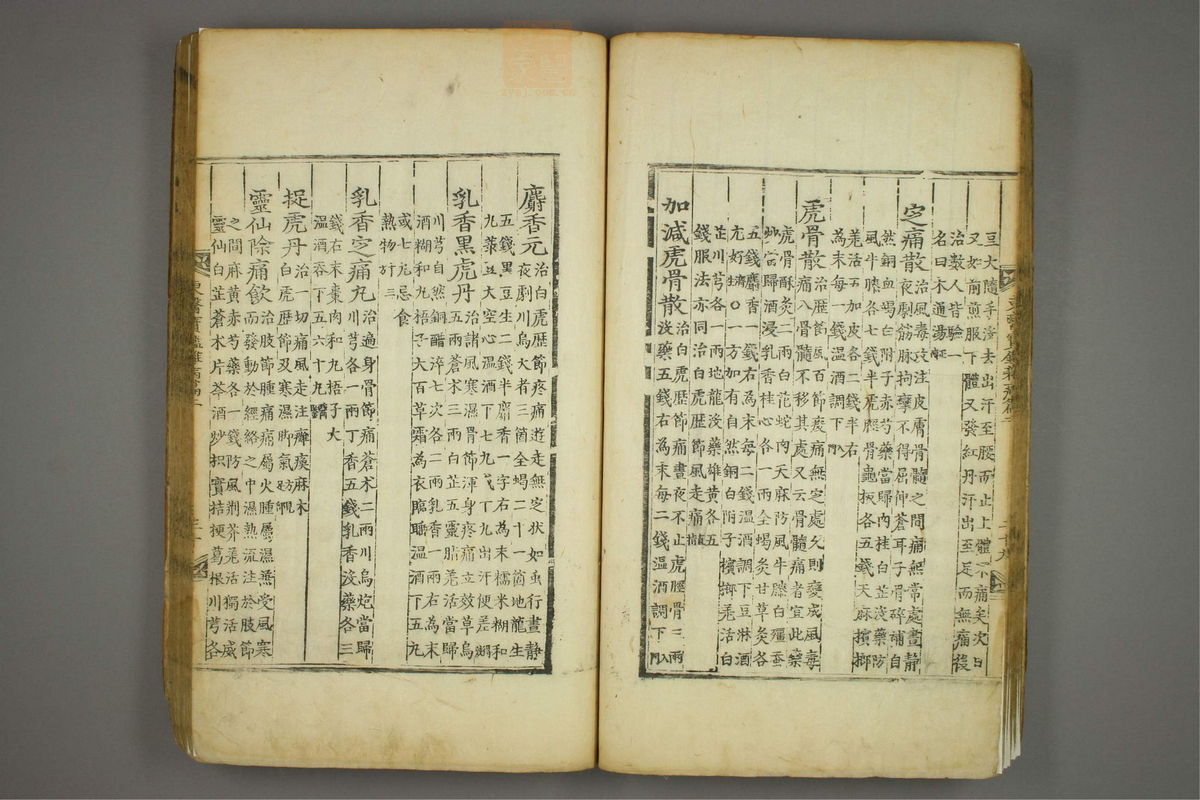 豆大隨手澾去出汗至腰而止上體不痛矣次日
又如前煎服下體又發紅丹汗出至足而無痛後
治數人皆驗一
名曰木通湯
定痛散治風毒攻注皮膚骨髓之間痛無常處晝靜
夜劇筋脉拘攣不得屈伸蒼耳子骨碎補自
然銅血竭白附子赤芍藥當歸肉桂白芷沒藥防
風牛膝各七錢半虎脛骨龜板各五錢天麻檳榔
羌活五加皮各二錢半右
為末每一錢溫酒調下
虎骨散治歷節風百節疼痛無定處久則變成風毒
痛入骨髓不移其處又云骨髓痛者宜此藥
虎骨酥灸二兩白花蛇肉天麻防風牛膝白殭蚕
當歸酒浸乳香桂心各一兩全蝎灸甘草灸各
五錢麝香一錢右為末每二錢溫酒調下豆淋酒
尤好○一方加有自然銅白附子檳榔羌活白
芷川芎各一兩地龍沒藥雄黃各五
錢服法亦同治白虎歷節風走痛
加減虎骨散治白虎歷節痛晝夜不止虎脛骨三兩
沒藥五錢右為末每二錢溫酒調下
麝香元治白虎歷節疼痛遊走無定状如虫行晝靜
夜劇川烏大者三箇全蝎二十一箇地龍生
五錢黑豆生二錢半麝香一字右為末糯米糊和
丸菉豆大空心溫酒下七丸或十丸出汗便差
乳香黑虎丹治諸風寒濕骨節渾身疼痛立效草烏
五兩蒼朮三兩白芷五靈脂羌活當歸
川芎自然銅醋淬七次各二兩乳香一兩右為末
酒糊和丸梧子大百草霜為衣臨睡溫酒下五丸
或七丸忌食
熱物
乳香定痛丸治遍身骨節痛蒼朮二兩川烏炮當歸
川芎各一兩丁香五錢乳香沒藥各三
錢右末棗肉和丸梧子大
溫酒吞下五六十丸
捉虎丹治一切痛風走注癱瘓麻木
白虎歷節及寒濕脚氣
靈仙除痛飮治肢節腫痛痛屬火腫屬濕兼受風寒
而發動於經絡之中濕熱流注於肢節
之間麻黃赤芍藥各一錢防風荆芥羌活獨活威
靈仙白芷蒼朮片芩酒炒枳實桔梗葛根川芎各
東醫寶鑑雜病篇